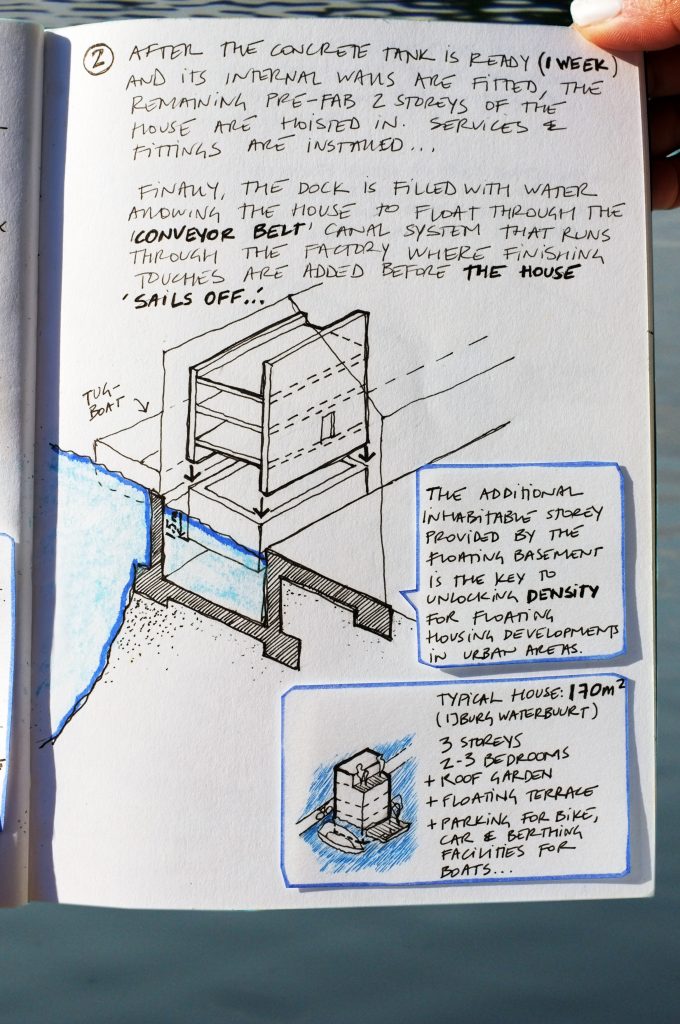 2 AFTER THE CONCRETE TANK IS READY (1 WEEK)
AND ITS INTERNAL WALLS ARE FITTED, THE
REMAINING PRE-FAB 2 STOREYS OF THE
HOUSE ARE HOISTED IN. SERVICES &
FITTINGS ARE INSTALLED...
FINALLY, THE DOCK IS FILLED WITH WATER
ALLOWING THE HOUSE TO FLOAT THROUGH THE
'CONVEYOR BELT' CANAL SYSTEM THAT RUNS
THROUGH THE FACTORY WHERE FINISHING
TOUCHES ARE ADDED BEFORE THE HOUSE
'SAILS OFF...'
TUG-
BOAT
1.5m
THE ADDITIONAL
INHABITABLE STOREY
PROVIDED BY THE
FLOATING BASEMENT
IS THE KEY TO
UNLOCKING DENSITY
FOR FLOATING
HOUSING DEVELOPMENTS
IN URBAN AREAS.
TYPICAL HOUSE: 170m²
(IJBURG WATERBUURT)
3 STOREYS
2-3 BEDROOMS
+ ROOF GARDEN
+ FLOATING TERRACE
+ PARKING FOR BIKE,
CAR & BERTHING
FACILITIES FOR
BOATS...